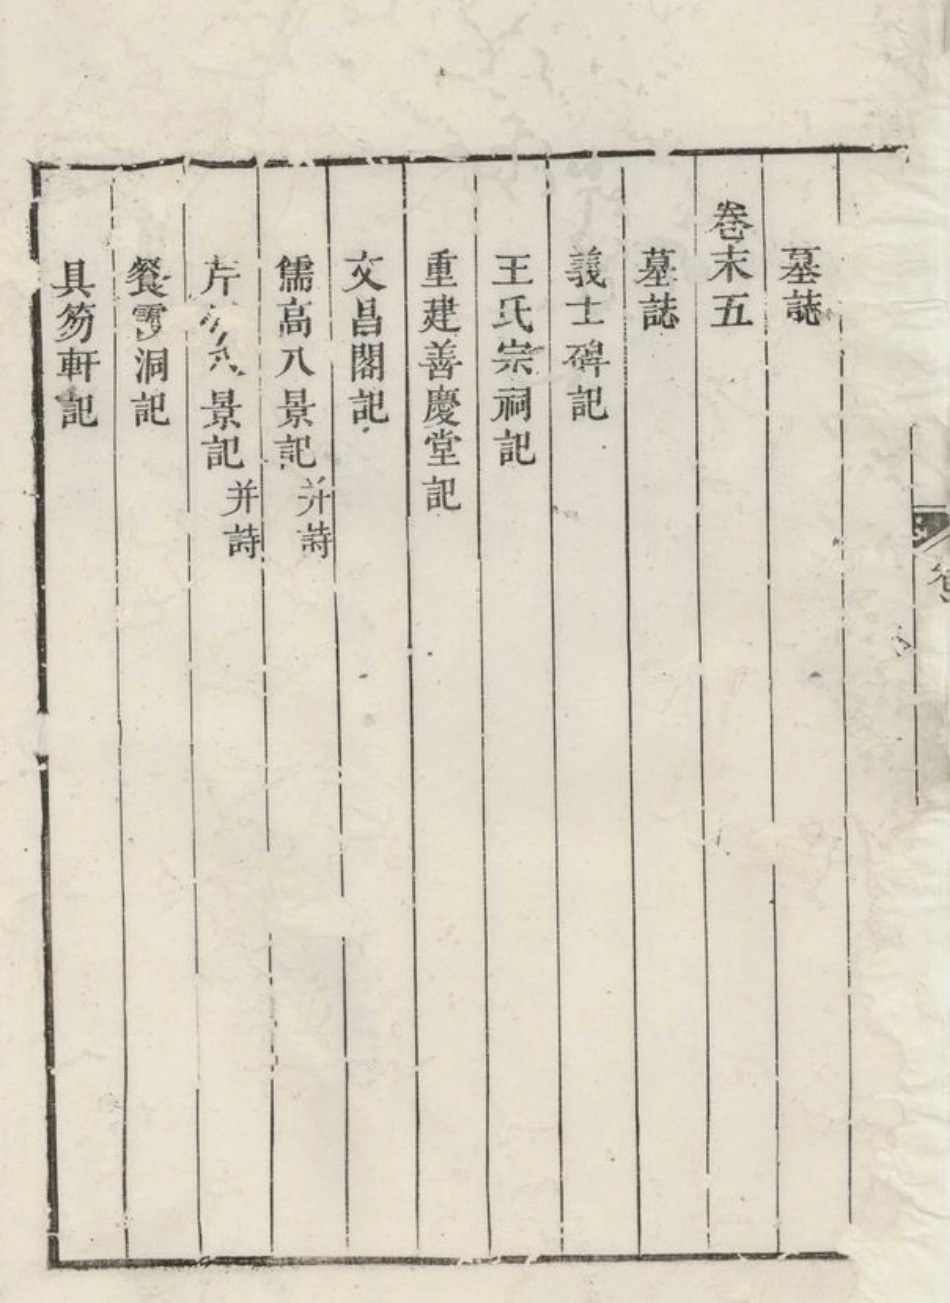 墓誌
卷末五
墓誌
義士碑記
王氏宗祠記
重建善慶堂記
文昌閣記
儒高八景記并詩
芹八景記并詩
餐雪洞記
具笏軒記